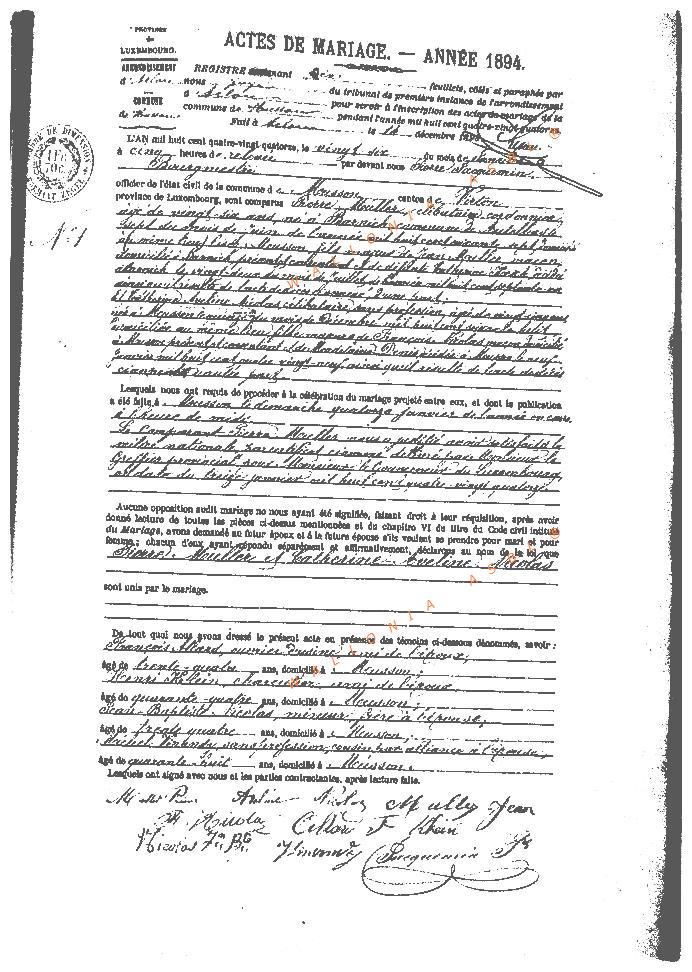 PROVINCE
de
LUXEMBOURG.
ARRONDISSEMENT
d' Arlon
COMMUNE
de Musson
ACTES DE MARIAGE. — ANNÉE 1894.
REGISTRE contenant dix feuillets, cotés et paraphés par
nous juge du tribunal de première instance de l'arrondissement
d' Arlon pour servir à l'inscription des actes de mariage de la
commune de Musson pendant l'année mil huit cent quatre-vingt-quatorze
Fait à Arlon le 14 décembre 1893
N° 1
L'AN mil huit cent quatre-vingt-quatorze, le vingt six du mois de janvier
à cinq heures de relevée par devant nous Pierre Jacquemin
Bourgmestre
officier de l'état civil de la commune de Musson canton de Virton
province de Luxembourg, sont comparus Pierre Muller, célibataire cordonnier
âgé de vingt six ans, né à Barnich commune de
sept du mois de juin de l'année mil huit cent soixante sept domicilié
Musson fils majeur de Jean Muller maçon
domicilié à Barnich présent et consentant et de défunte Catherine décédée
à Barnich le vingt deux du mois de juillet de l'année mil huit cent
ainsi qu'il résulte de l'acte de décès d'une part,
Et Cathérine Eveline Nicolas célibataire, sans profession, âgée de vingt cinq ans
née à Musson le du mois de Décembre mil huit cent soixante huit
domiciliée au même lieu fille majeure de François Nicolas domicilié
à Musson présent et consentant et de Madeleine Denis décédée à Musson le neuf
janvier mil huit cent quatre vingt neuf ainsi qu'il résulte de l'acte de décès
ci annexé d'autre part.
Lesquels nous ont requis de procéder à la célébration du mariage projeté entre eux, et dont la publication
a été faite à Musson le dimanche quatorze janvier de l'année en cours
à l'heure de midi
Le comparant Pierre Muller nous a justifié avoir satisfait à la
milice nationale par certificat ci annexé délivré par Monsieur le
Greffier provincial pour Monsieur le Gouverneur du Luxembourg,
en date du treize janvier mil huit cent quatre vingt quatorze
Aucune opposition audit mariage ne nous ayant été signifiée, faisant droit à leur réquisition, après avoir
donné lecture de toutes les pièces ci-dessus mentionnées et du chapitre VI du titre du Code civil intitulé
du Mariage, avons demandé au futur époux et à la future épouse s'ils veulent se prendre pour mari et pour
femme; chacun d'eux ayant répondu séparément et affirmativement, déclarons au nom de la loi que
Pierre Muller et Catherine Eveline Nicolas
sont unis par le mariage.
De tout quoi nous avons dressé le présent acte en présence des témoins ci-dessous dénommés, savoir :
François Allard, ouvrier d'usine ami de l'époux,
âgé de trente-quatre ans, domicilié à Musson
Henri Klein charcutier ami de l'époux
âgé de quarante-quatre ans, domicilié à Musson;
Jean-Baptiste Nicolas, mineur, frère à l'épouse;
âgé de trente quatre ans, domicilié à Musson;
Michel sans profession, cousin par alliance à l'épouse,
âgé de quarante huit ans, domicilié à Musson.
Lesquels ont signé avec nous et les parties contractantes, après lecture faite.
Muller Pierre Nicolas Muller Jean
F. Nicolas Klein
Nicolas J<sup>n</sup> B<sup>te</sup> Jacquemin P<sup>re</sup>
WALLONIA ASBL